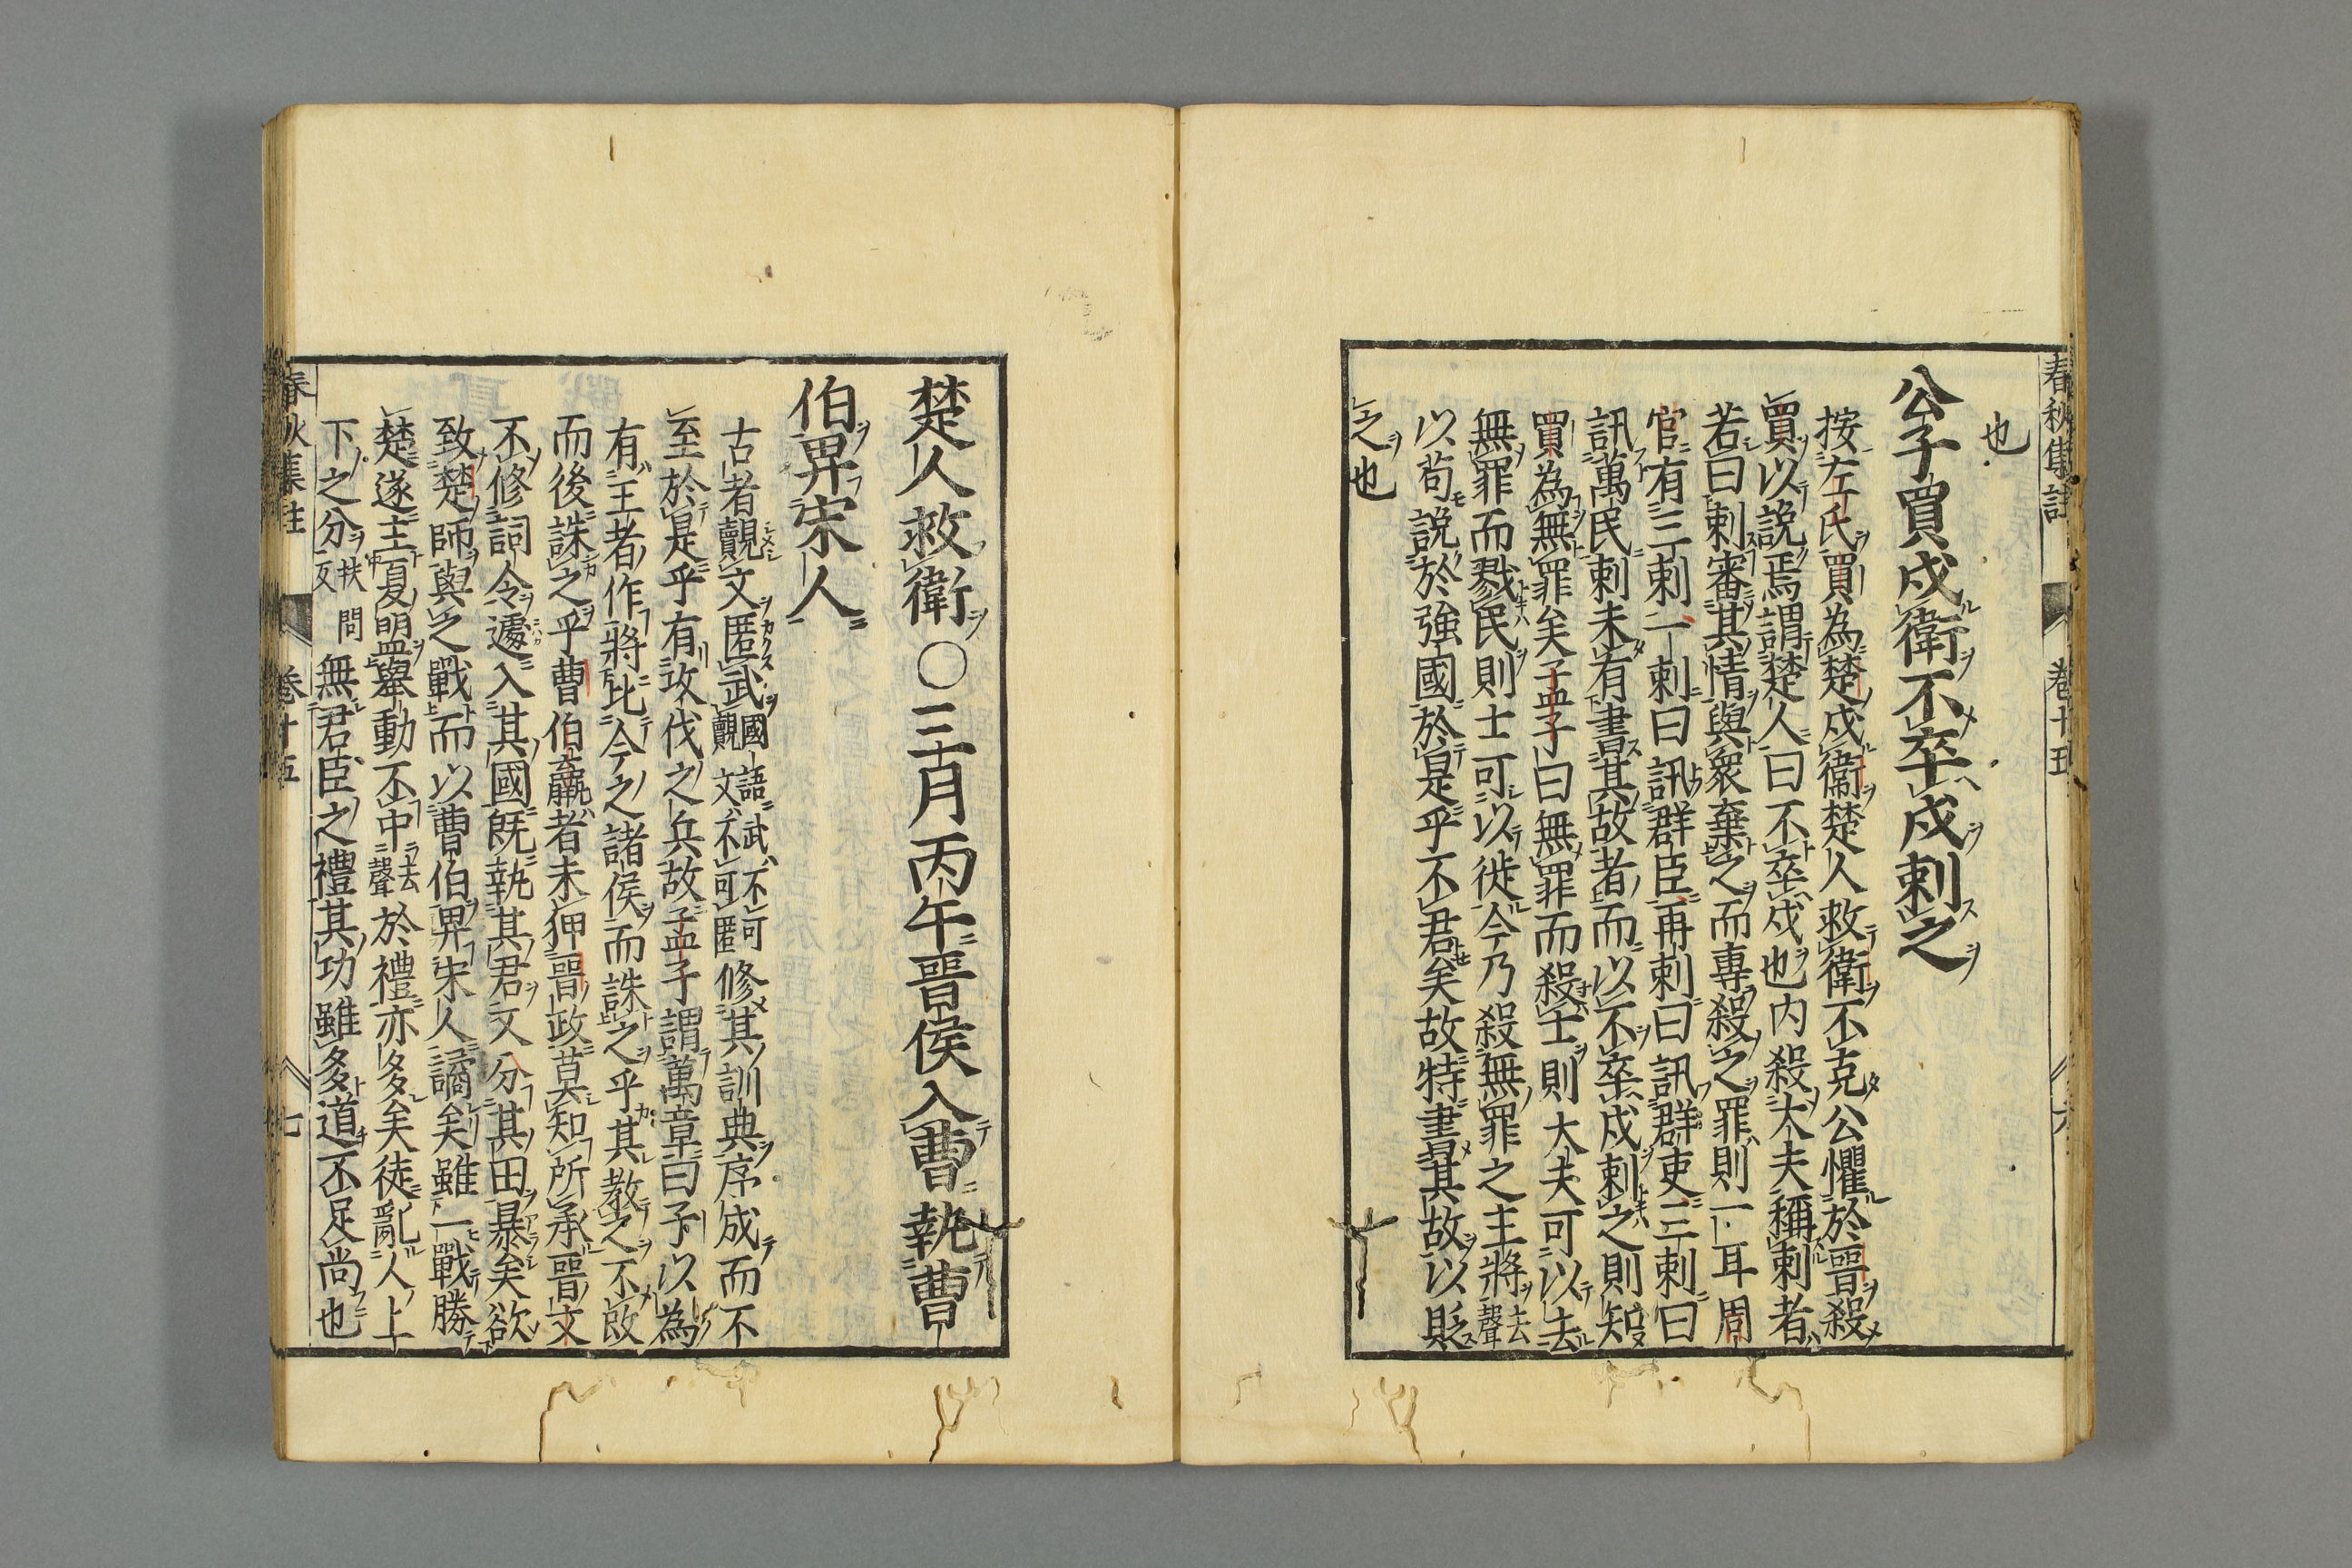 春秋集註 卷十五 六
也
公子買戍衛不卒戍刺之
按左氏買為楚戍衛楚人救衛不克公懼於晉殺
買以説焉謂楚人曰不卒戍也内殺大夫稱刺者
若曰刺審其情與衆棄之而專殺之罪則一耳周
官有三刺一刺曰訊群臣再刺曰訊群吏三刺曰
訊萬民刺未有書其故者而以不卒戍刺之則知
買為無罪矣孟子曰無罪而殺士則大夫可以去
無罪而戮民則士可以徙今乃殺無罪之主將去聲
以苟説於強國於是乎不君矣故特書其故以貶
之也
楚人救衛〇三月丙午晉侯入曹執曹
伯畀宋人
古者覿文匿武國語武不可覿文不可匿修其訓典序成而不
至於是乎有攻伐之兵故孟子謂萬章曰子以為
有王者作將比今之諸侯而誅之乎其教之不改
而後誅之乎曹伯羸者未狎晉政莫知所承晉文
不修詞令遽入其國既執其君又分其田暴矣欲
致楚師與之戰而以曹伯畀宋人譎矣雖一戰勝
楚遂主夏盟舉動不中去聲於禮亦多矣徒亂人上
下之分扶問反無君臣之禮其功雖多道不足尚也
春秋集註 卷十五 七